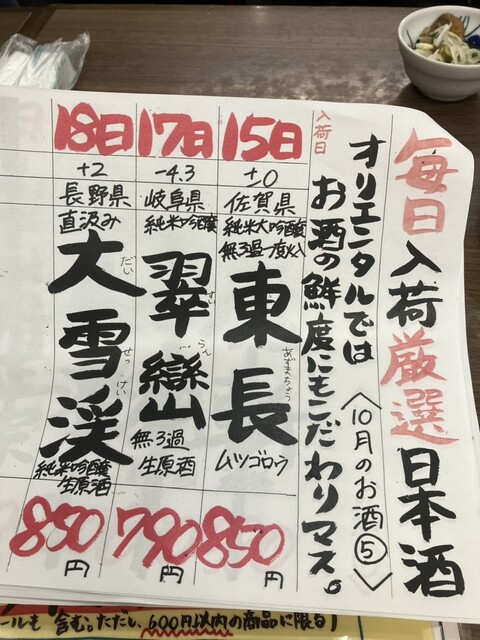 毎日入荷厳選日本酒
オリエンタルでは
お酒の鮮度にもこだわりマス。
<10月のお酒⑤>
入荷日
15日
±0
佐賀県
純米大吟醸
無ろ過一度火入
東長
あずまちょう
ムツゴロウ
850円
17日
-4.3
岐阜県
純米吟醸
翠巒
すいらん
無ろ過
生原酒
790円
18日
+2
長野県
直汲み
大雪渓
だいせっけい
純米吟醸
生原酒
850円
ールも含む。ただし、600円以内の商品に限る)